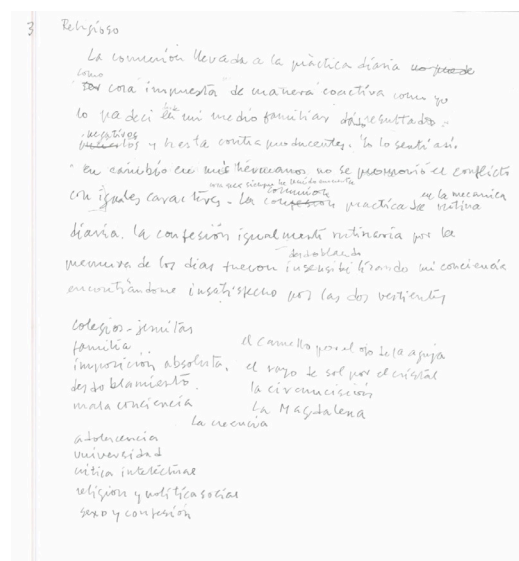 3 Religioso
La comunión llevada a la práctica diaria no puede
como
ser cosa impuesta de manera coactiva como yo
lo padecí en mi medio familiar da resultados
negativos
nulos y hasta contraproducentes. Yo lo sentí así.
en cambio en mis hermanos no se promovió el conflicto
con iguales caracteres. La confesión practicada
comunión
en la mecánica
rutina
diaria. la confesión igualmente rutinaria por la
desdoblando
de los días fueron insensibilizando mi conciencia
encontrándome insatisfecho por las dos vertientes
colegios - jesuitas
familia
imposición absoluta.
desdoblamiento.
mala conciencia
el camello por el ojo de la aguja
el rayo de sol por el cristal
la circuncisión
La Magdalena
la creencia
adolescencia
universidad
crítica intelectual
religion y política social
sexo y confesión